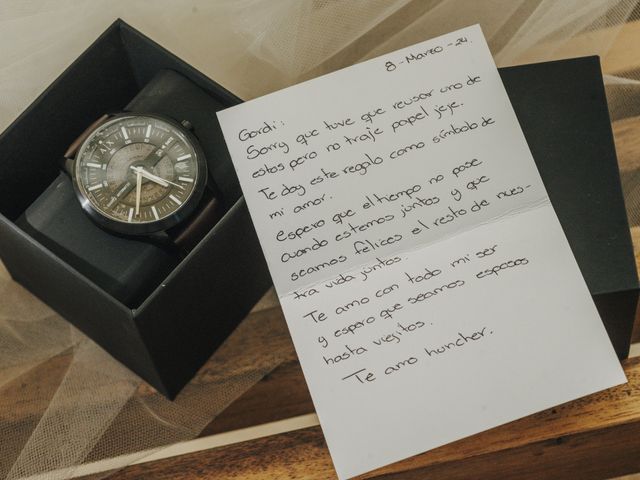 8-Marzo-24.
Gordi:
Sorry que tuve que reusar uno de
estos pero no traje papel jeje.
Te doy este regalo como símbolo de
mi amor.
Espero que el tiempo no pase
cuando estemos juntos y que
seamos felices el resto de nues-
tra vida juntos.
Te amo con todo mi ser
y espero que seamos esposos
hasta viejitos.
Te amo huncher.